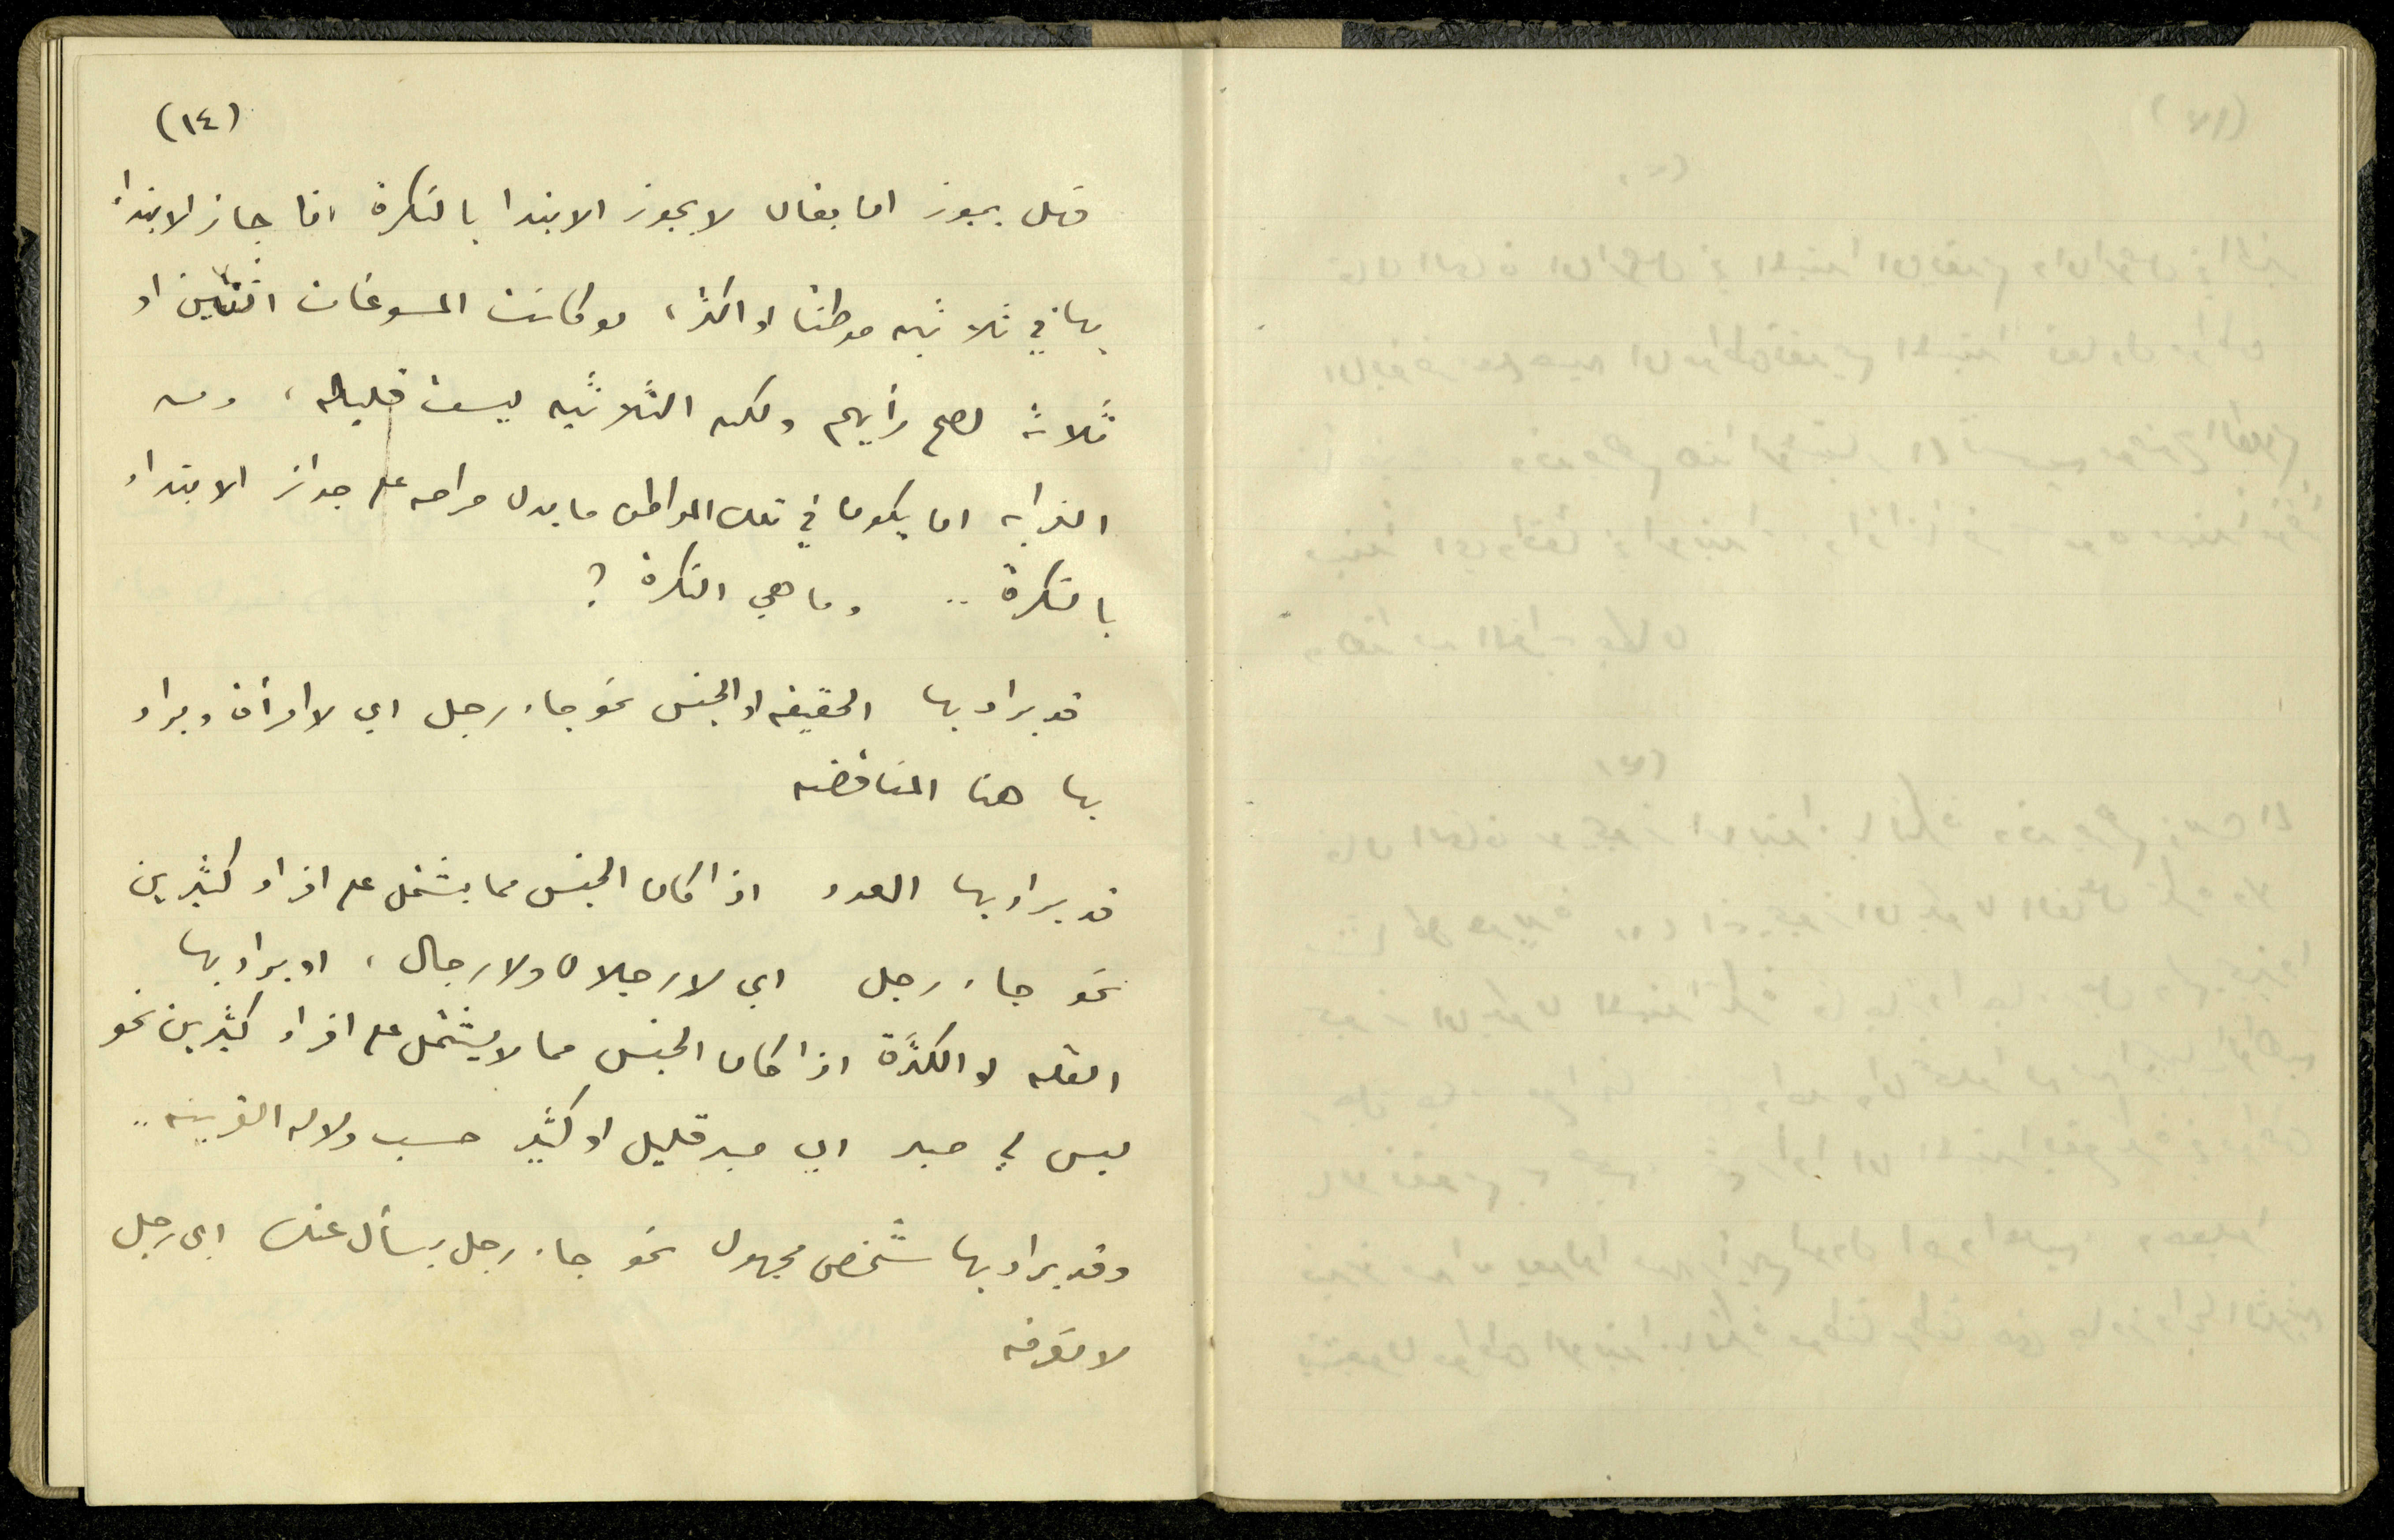 (١٤)
فهل يجوز ان يقال لا يجوز الابتدا بالنكرة اذا جاز الابتداء
بها في ثلاثين موطنا او اكثر، لو كانت المسوغات اثنتين او
ثلاثة لصح رأيهم ولكن الثلاثين ليست قليله، ومن
الغرابه ان يكون في تلك المواطن ما يدل صراحه على جواز الابتداء
بالنكرة .. وما هي النكرة ؟
قد يراد بها الحقيقه او الجنس نحو جاء رجل اي لا امرأة ويراد
بها هنا المناقضه
قد يراد بها العدد اذا كان الجنس مما يشتمل على افراد كثيرين
نحو جاء رجل اي لا رجلان ولا رجال، او يراد بها
القله او الكثرة اذا كان الجنس مما لا يشتمل على افراد كثيرين نحو
ليس لي صبر اي صبر قليل او كثير حسب دلاله القرينه ..
وقد يراد بها شخص مجهول نحو جاء رجل يسأل عنك اي رجل
لا نعرفه